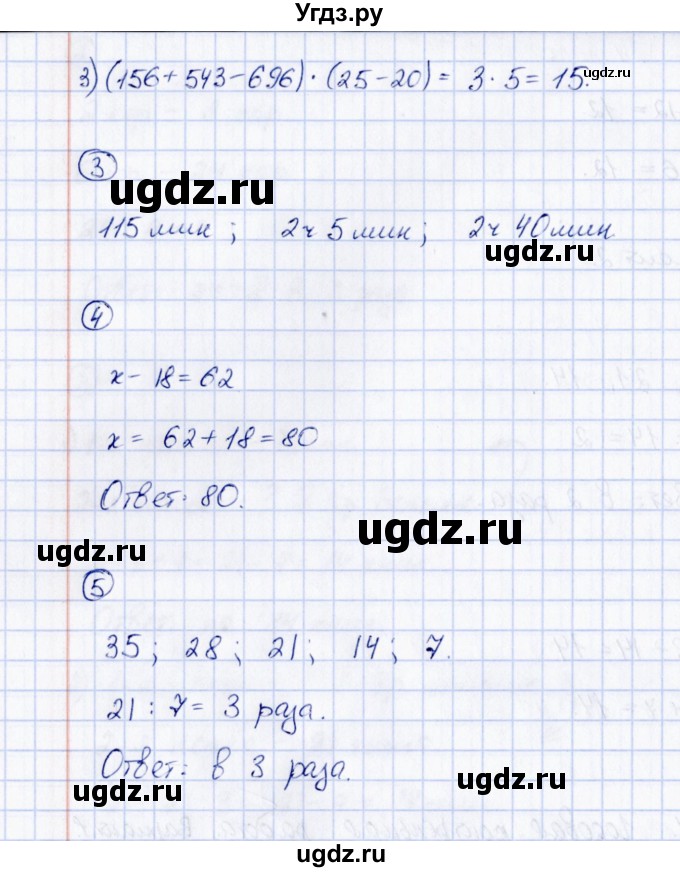 Угдз.ру
3) (156 + 543 - 696) · (25 - 20) = 3 · 5 = 15.
ugdz.ru
3
ugdz.ru
115 мин ; 2ч 5 мин ; 2ч 40 мин
ugdz.ru
4
x - 18 = 62
x = 62 + 18 = 80
Ответ: 80.
ugdz.ru
ugdz.ru
5
35 ; 28 ; 21 ; 14 ; 7.
21 : 7 = 3 раза.
Ответ: в 3 раза.
ugdz.ru
ugdz.ru
ugdz.ru